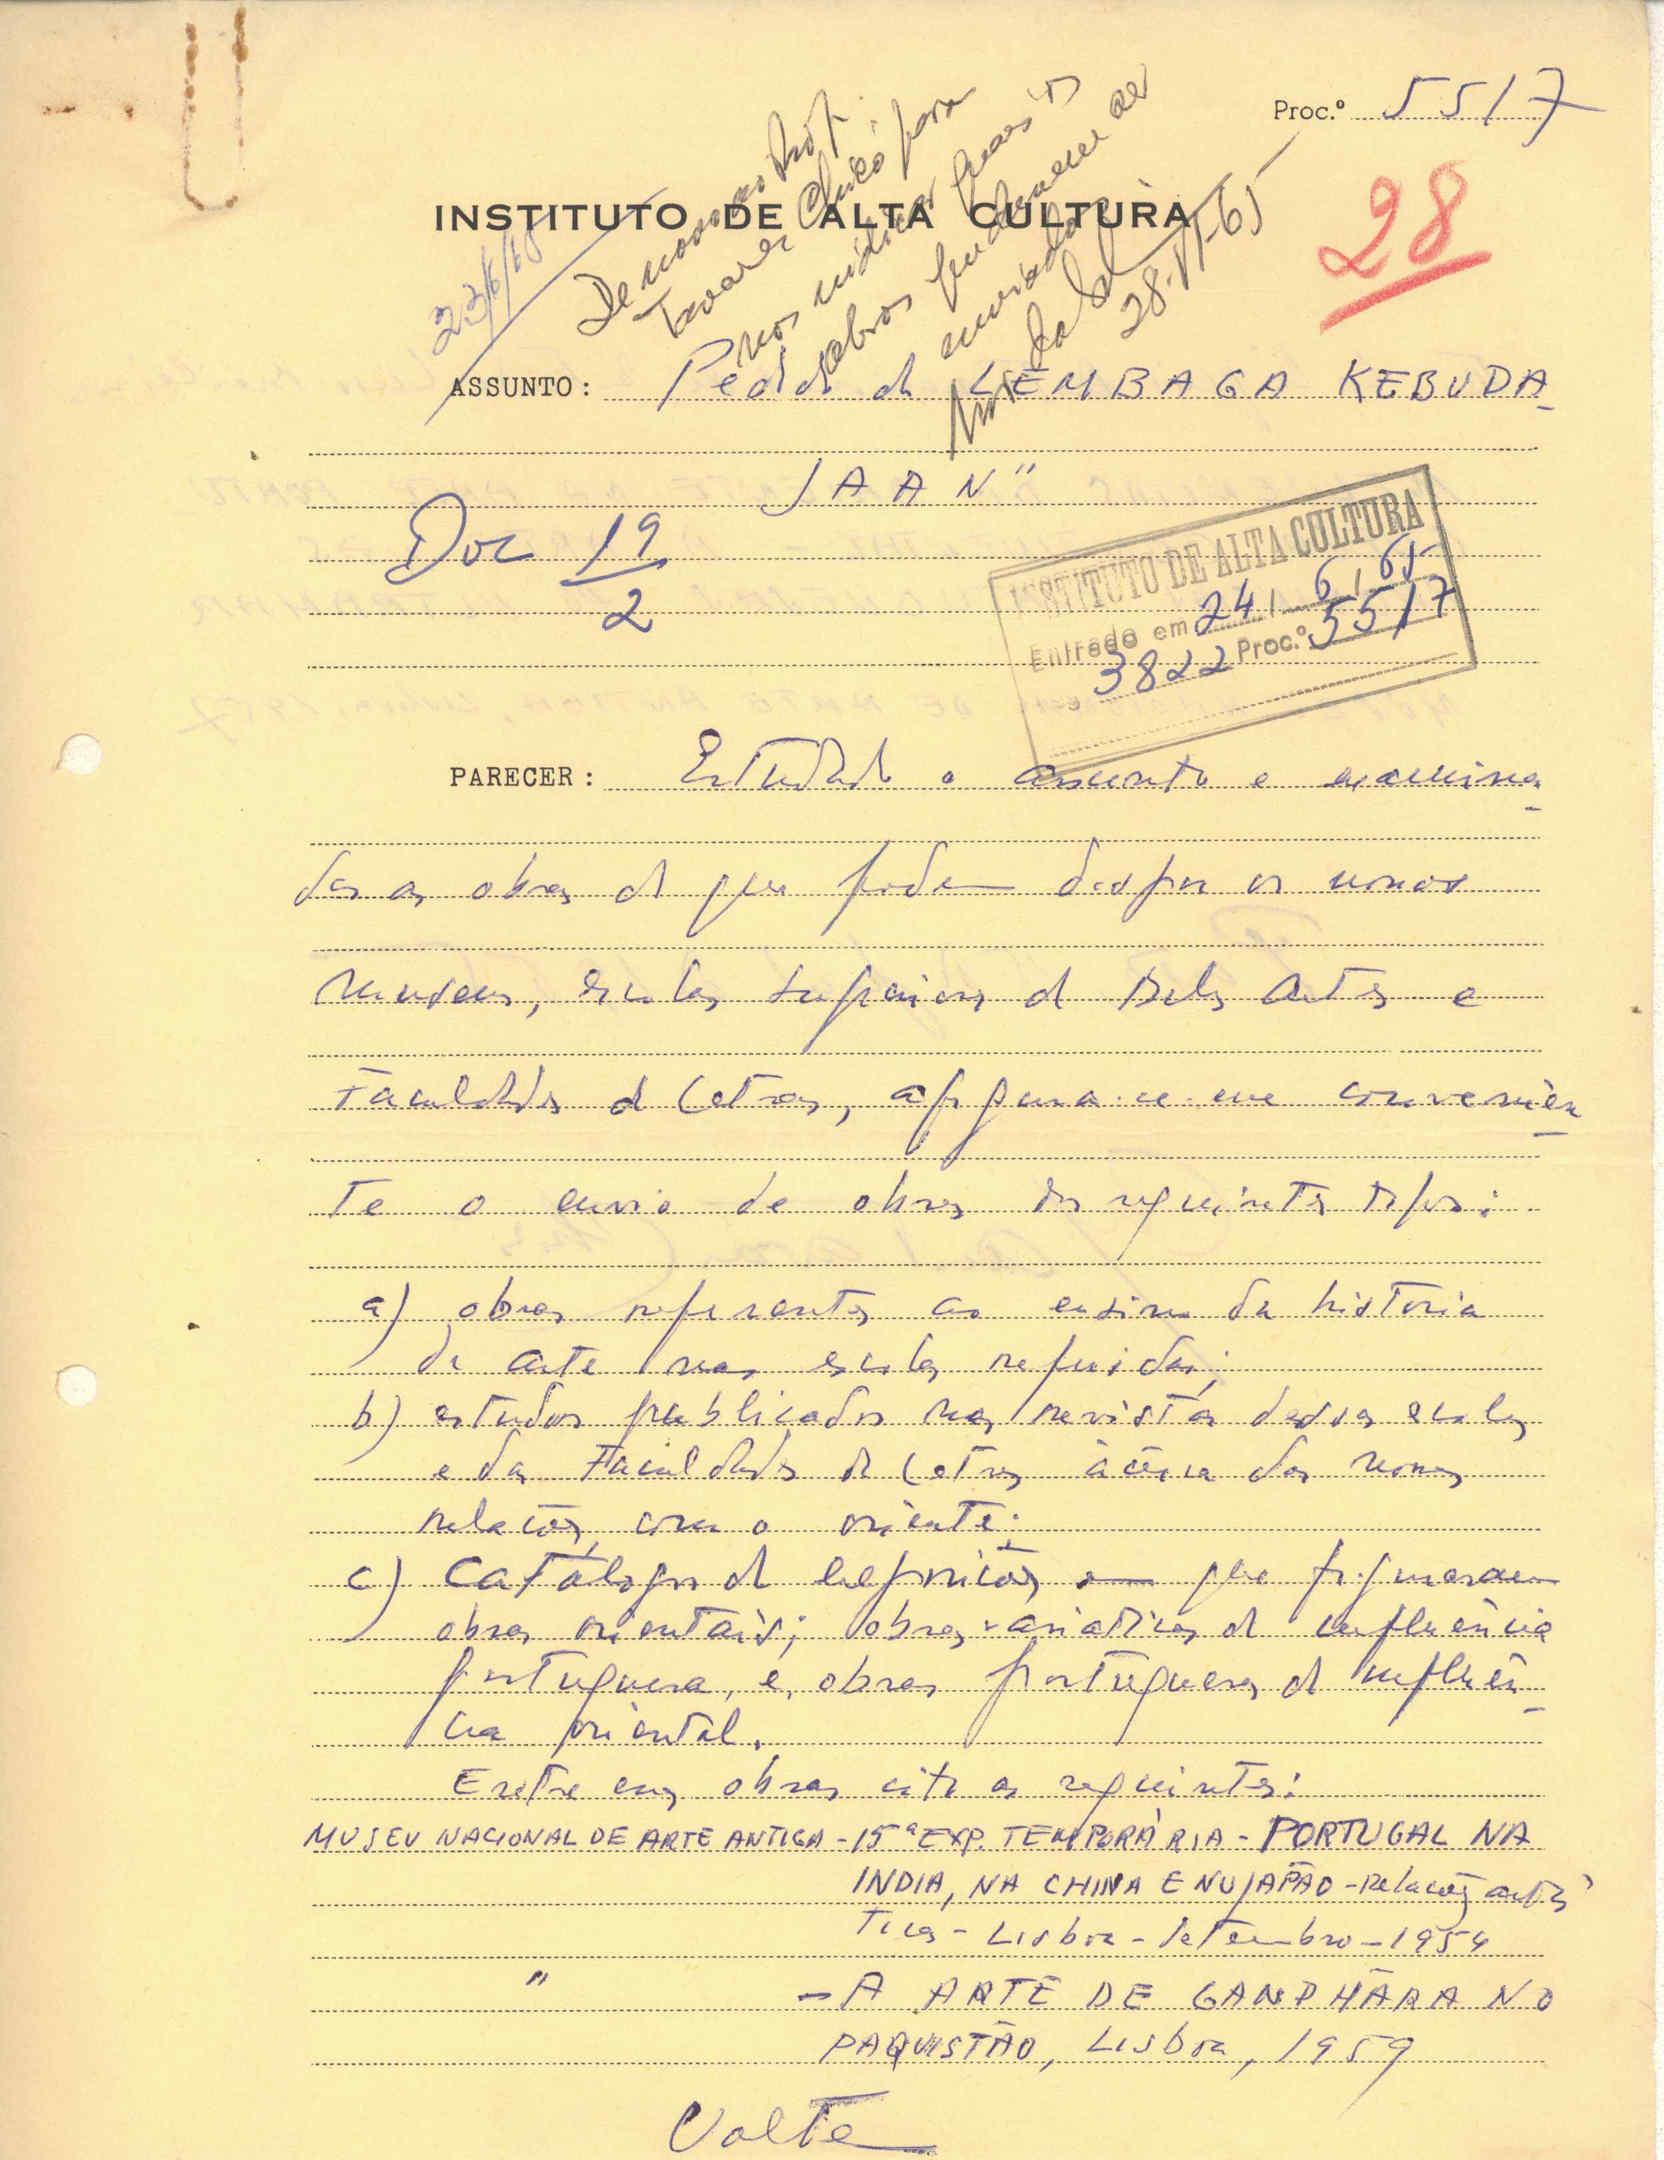 Proc.º 55/7
28
INSTITUTO DE ALTA CULTURA
23/6/65
De novo ao Prof.
Tavares Chicó para
nos indicar quais as
obras que devem ser
enviadas
28-VI-65
ASSUNTO: Pedido de LEMBAGA KEBUDA-
JAAN"
Doc 19/2
INSTITUTO DE ALTA CULTURA
Entrado em 24/6/65
3822 Proc.º 55/7
PARECER: Estudado o assunto e examina-
das as obras de que podem dispor os nossos
museus, escolas superiores de Belas Artes e
Faculdades de Letras, afigura-se-me convenien-
te o envio de obras dos seguintes tipos:
a) obras referentes ao ensino da história
da arte nas escolas referidas;
b) estudos publicados nas revistas dessas escolas
e das Faculdades de Letras àcerca das nossas
relações com o oriente;
c) Catálogos de exposições em que figuraram
obras orientais; obras asiáticas de influência
portuguesa, e, obras portuguesas de influên-
cia oriental.
Entre essas obras cito as seguintes:
MUSEU NACIONAL DE ARTE ANTIGA - 15ª EXP. TEMPORÁRIA - PORTUGAL NA
INDIA, NA CHINA E NO JAPÃO - Relações artís
ticas - Lisboa - Setembro - 1954
" - A ARTE DE GANDHÃRA NO
PAQUISTÃO, Lisboa, 1959
Volte